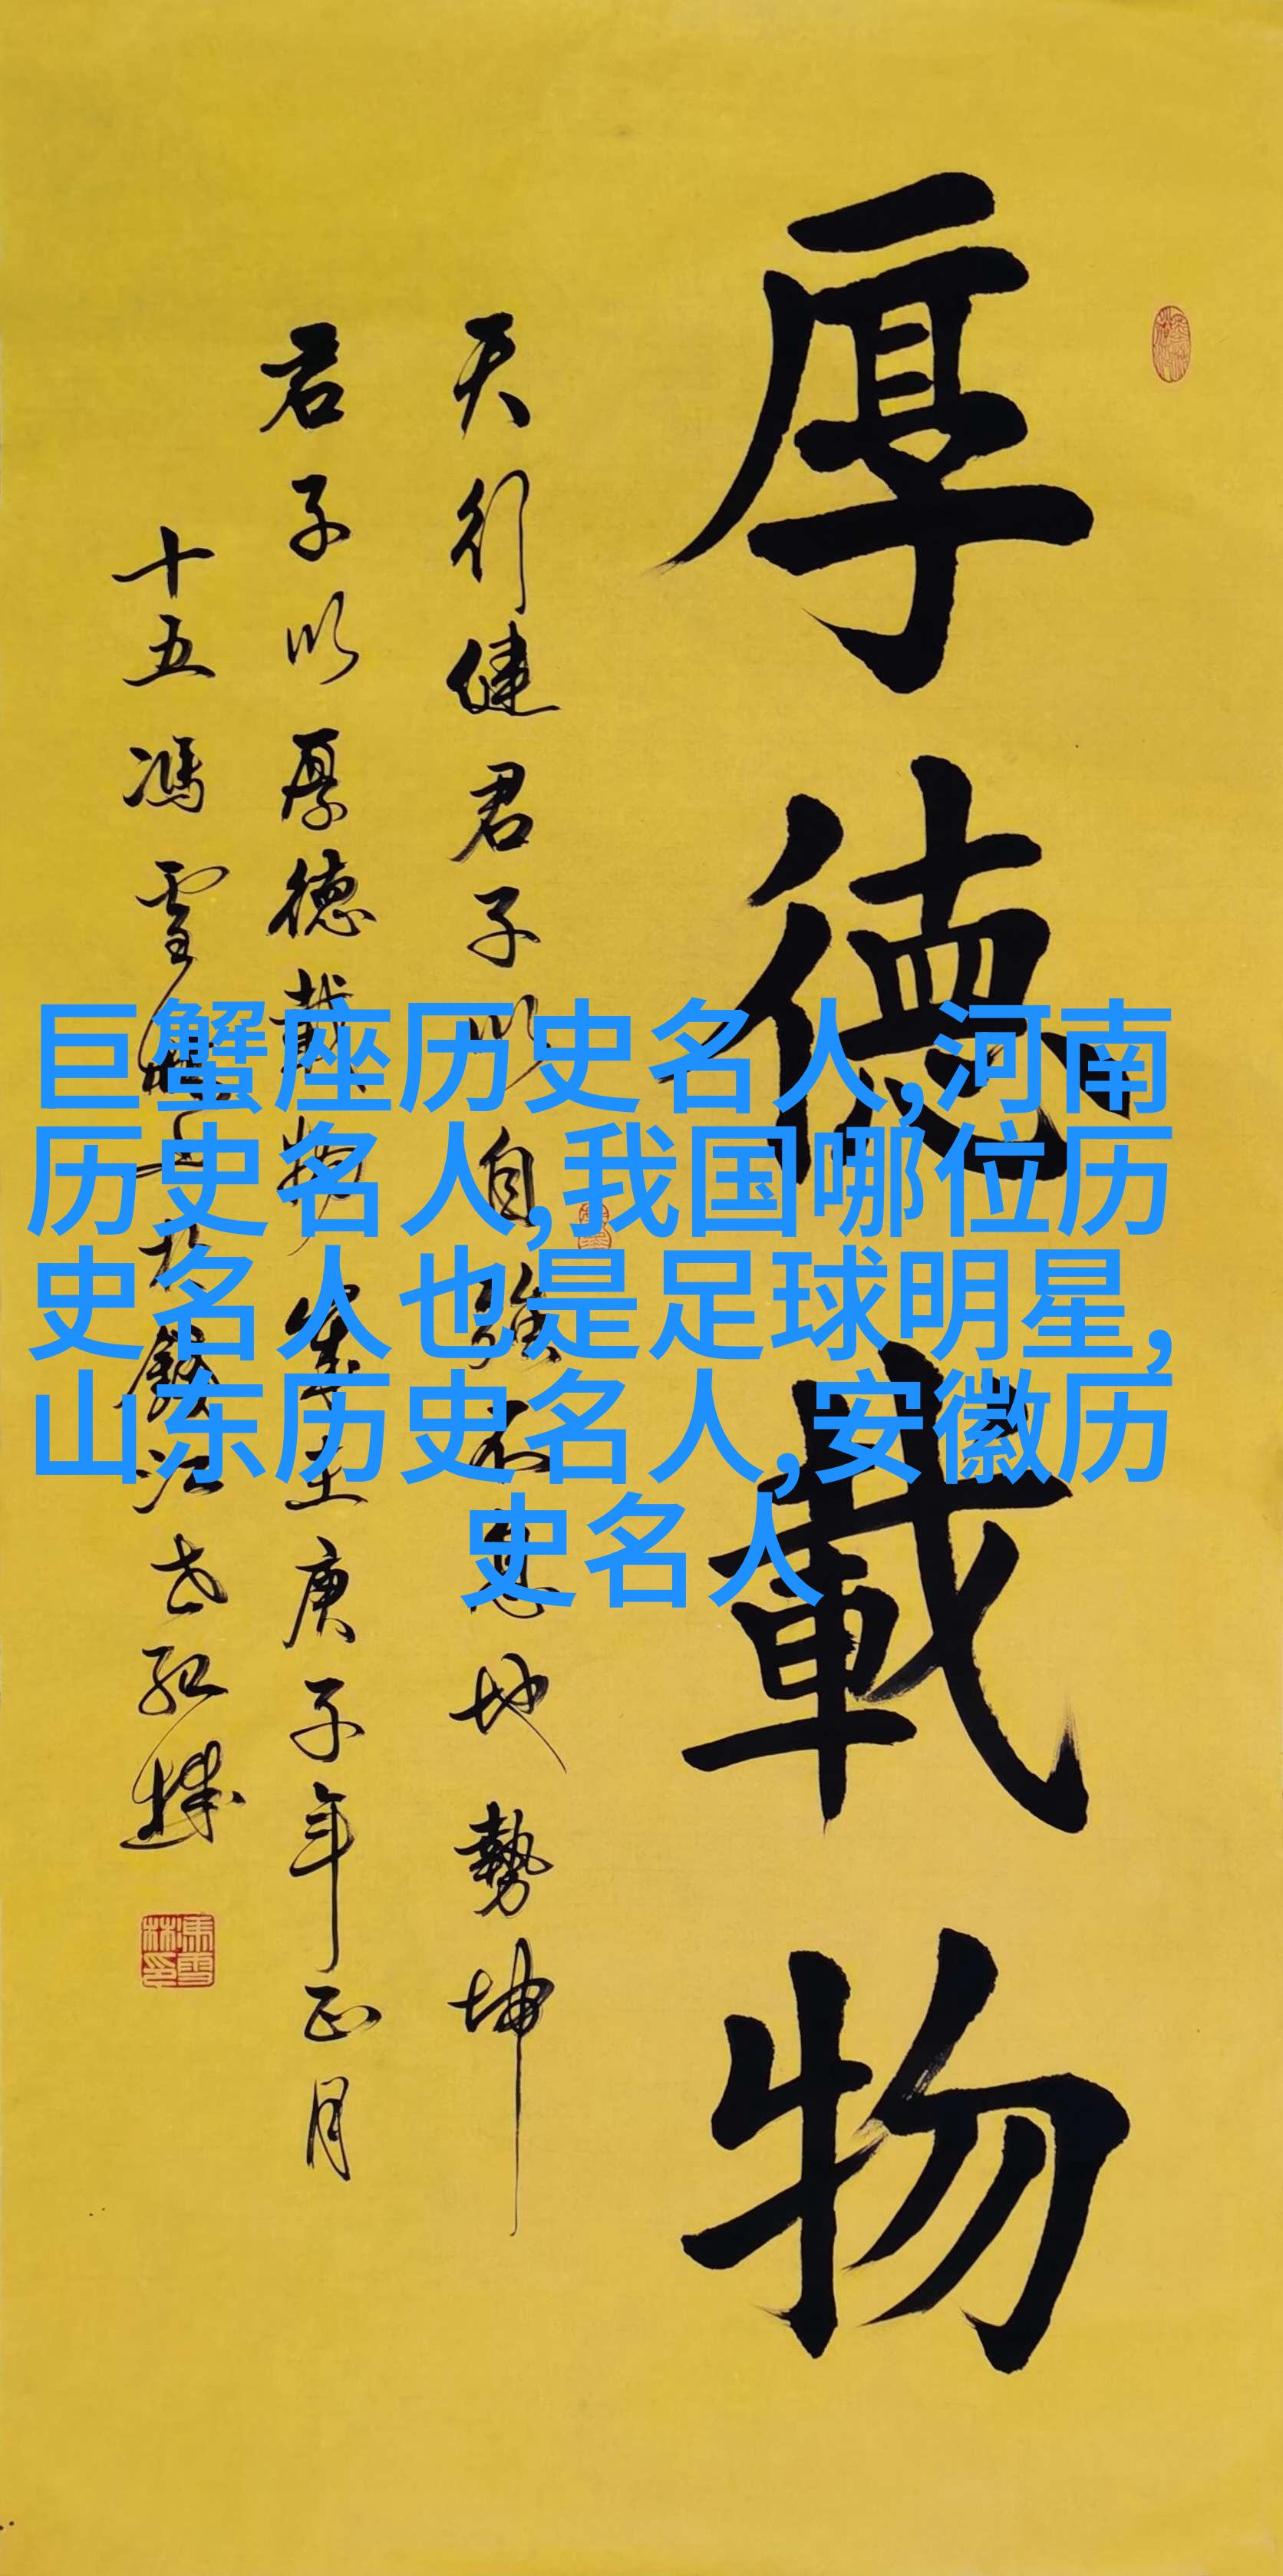 厚德載物
天行健君子以自強不息地勢坤
君子以厚德載物歲在庚子年正月
十五馮雪林
巨蟹座历史名人,河南
历史名人,我国哪位历
史名人也是足球明星,
山东历史名人,安徽历
史名人
馮雪林印